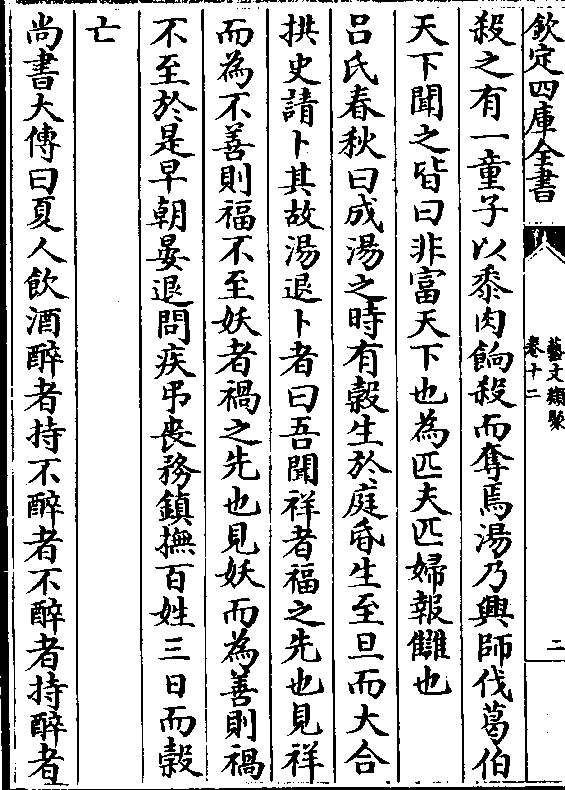 欽定四庫全書
藝文類聚
卷十二
二
殺之有一童子以黍肉餉殺而奪焉湯乃興師伐葛伯
天下聞之皆曰非富天下也為匹夫匹婦報讎也
呂氏春秋曰成湯之時有榖生於庭昏生至旦而大合
拱史請卜其故湯退卜者曰吾聞祥者福之先也見祥
而為不善則福不至妖者禍之先也見妖而為善則禍
不至於是早朝晏退問疾弔喪務鎮撫百姓三日而榖
亡
尚書大傳曰夏人飲酒醉者持不醉者不醉者持醉者